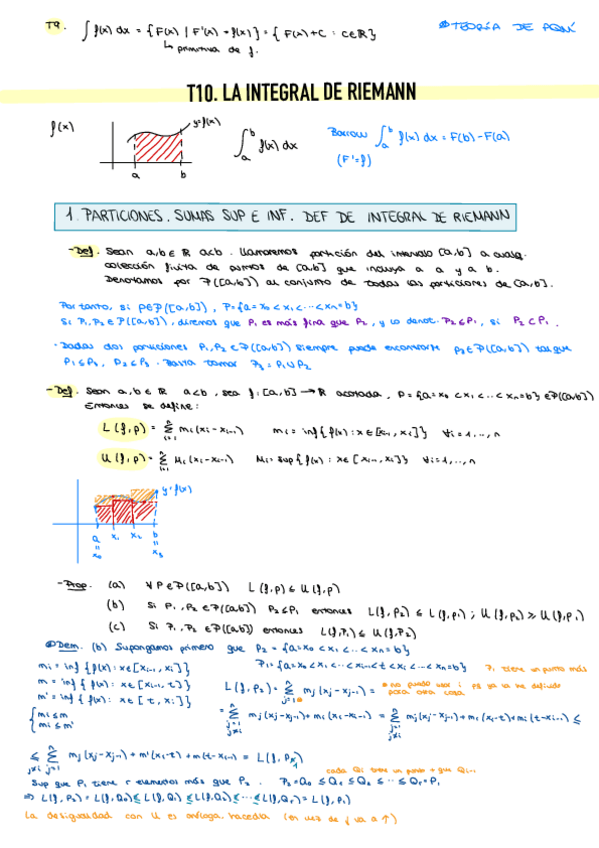 T9. ∫ f(x) dx = { F(x) | F'(x) = f(x)} = { F(x)+C : C∈ℝ}
La primitiva de f.
TEORÍA DE AQUÍ
T10. LA INTEGRAL DE RIEMANN
f(x)
y=f(x)
a b
∫_a^b f(x) dx
Barrow ∫_a^b f(x) dx = F(b)-F(a)
(F'=f)
1. PARTICIONES, SUMAS SUP E INF. DEF DE INTEGRAL DE RIEMANN
-Def. Sean a,b ∈ ℝ a<b. Llamaremos partición del intervalo [a,b] a cualq.
colección finita de puntos de [a,b] que incluya a a y a b.
Denotamos por P([a,b]) al conjunto de todas las particiones de [a,b].
Por tanto, si P∈P([a,b]), P={a=x₀<x₁<...<xₙ=b}
Si P₁,P₂∈P([a,b]), diremos que P₁ es más fina que P₂, y lo denot. P₂≤P₁, si P₂⊂P₁.
· Dadas dos particiones P₁,P₂∈P([a,b]) siempre puede encontrarse P₃∈P([a,b]) tal que
P₁≤P₃, P₂≤P₃. Basta tomar P₃=P₁∪P₂
-Def. Sean a,b∈ℝ a<b, sea f:[a,b]→ℝ acotada, P={a=x₀<x₁<...<xₙ=b}∈P([a,b])
Entonces se define:
L(f,p) = Σ_{i=1}^n mᵢ(xᵢ-xᵢ₋₁) mᵢ=inf{f(x):x∈[xᵢ₋₁,xᵢ]} ∀i=1,..,n
U(f,p) = Σ_{i=1}^n Mᵢ(xᵢ-xᵢ₋₁) Mᵢ=sup{f(x):x∈[xᵢ₋₁,xᵢ]} ∀i=1,..,n
y=f(x)
a x₁ x₂ b
= =
x₀ x₃
-Prop. (a) ∀P∈P([a,b]) L(f,p)≤U(f,p)
(b) Si P₁,P₂∈P([a,b]) P₂≤P₁ entonces L(f,p₂)≤L(f,p₁); U(f,p₂)≥U(f,p₁)
(c) Si P₁,P₂∈P([a,b]) entonces L(f,P₁)≤U(f,P₂)
Dem. (b) Supongamos primero que P₂={a=x₀<x₁<..<xₙ=b}
mᵢ=inf{f(x):x∈[xᵢ₋₁,xᵢ]} P₁={a=x₀<x₁<...<xᵢ₋₁<t<xᵢ<...<xₙ=b} P₁ tiene un punto más
m=inf{f(x):x∈[xᵢ₋₁,t]} L(f,P₂)=Σ_{j=1}^n mⱼ(xⱼ-xⱼ₋₁)= no puedo usar i pq ya va definido
para otra cosa
m'=inf{f(x):x∈[t,xᵢ]}
{mᵢ≤m
mᵢ≤m'
=Σ_{j=1, j≠i}^n mⱼ(xⱼ-xⱼ₋₁)+mᵢ(xᵢ-xᵢ₋₁) = Σ_{j=1, j≠i}^n mⱼ(xⱼ-xⱼ₋₁)+mᵢ(xᵢ-t)+mᵢ(t-xᵢ₋₁) ≤
≤ Σ_{j=1, j≠i}^n mⱼ(xⱼ-xⱼ₋₁)+m'(xᵢ-t)+m(t-xᵢ₋₁) = L(f,P₁)
cada Qᵢ tiene un punto + que Qᵢ₋₁
Sup que P₁ tiene r elementos más que P₂. P₂=Q₀≤Q₁≤Q₂≤...≤Qᵣ=P₁
⇒ L(f,P₂)=L(f,Q₀)≤L(f,Q₁)≤L(f,Q₂)≤...≤L(f,Qᵣ)=L(f,P₁)
La desigualdad con U es análoga, hacedla (en vez de ↓ va a ↑)